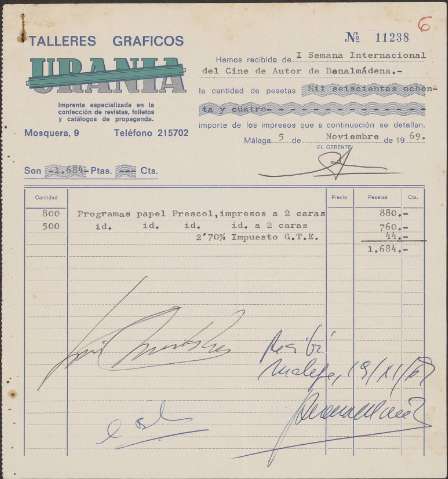 6
TALLERES GRAFICOS
URANIA
Imprenta especializada en la
confección de revistas, folletos
y catálogos de propaganda.
Mosquera, 9 Teléfono 215702
Nº 11238
Hemos recibido de I Semana Internacional
del Cine de Autor de Benalmádena.-
la cantidad de pesetas Mil seiscientas ochen-
ta y cuatro
importe de los impresos que a continuación se detallan.
Málaga 5 de Noviembre de 1969.
EL GERENTE
Son -1,684- Ptas. --- Cts.
Cantidad Precio Pesetas Cts.
800 Programas papel Prescol,impresos a 2 caras 880.-
500 id. id. id. id. a 2 caras 760.-
2'70% Impuesto G.T.E. 44.-
1,684.-
Recibí
Malaga, 19/XI/69